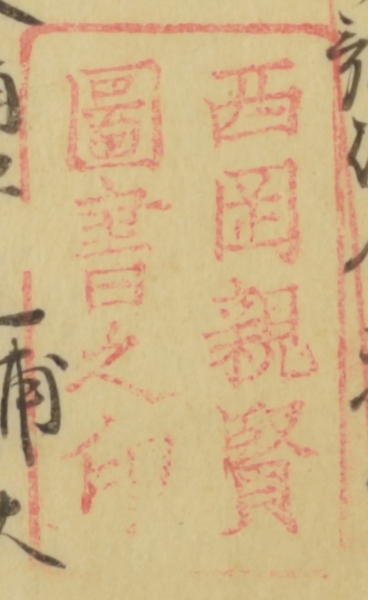 西岡親賢
圖書之印